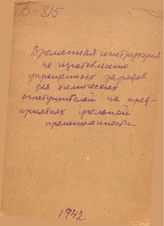 В-815
Временная инструкция
по изготовлению
упрощенных зарядов
для химических
огнетушителей на пред-
приятиях угольной
промышленности
1942